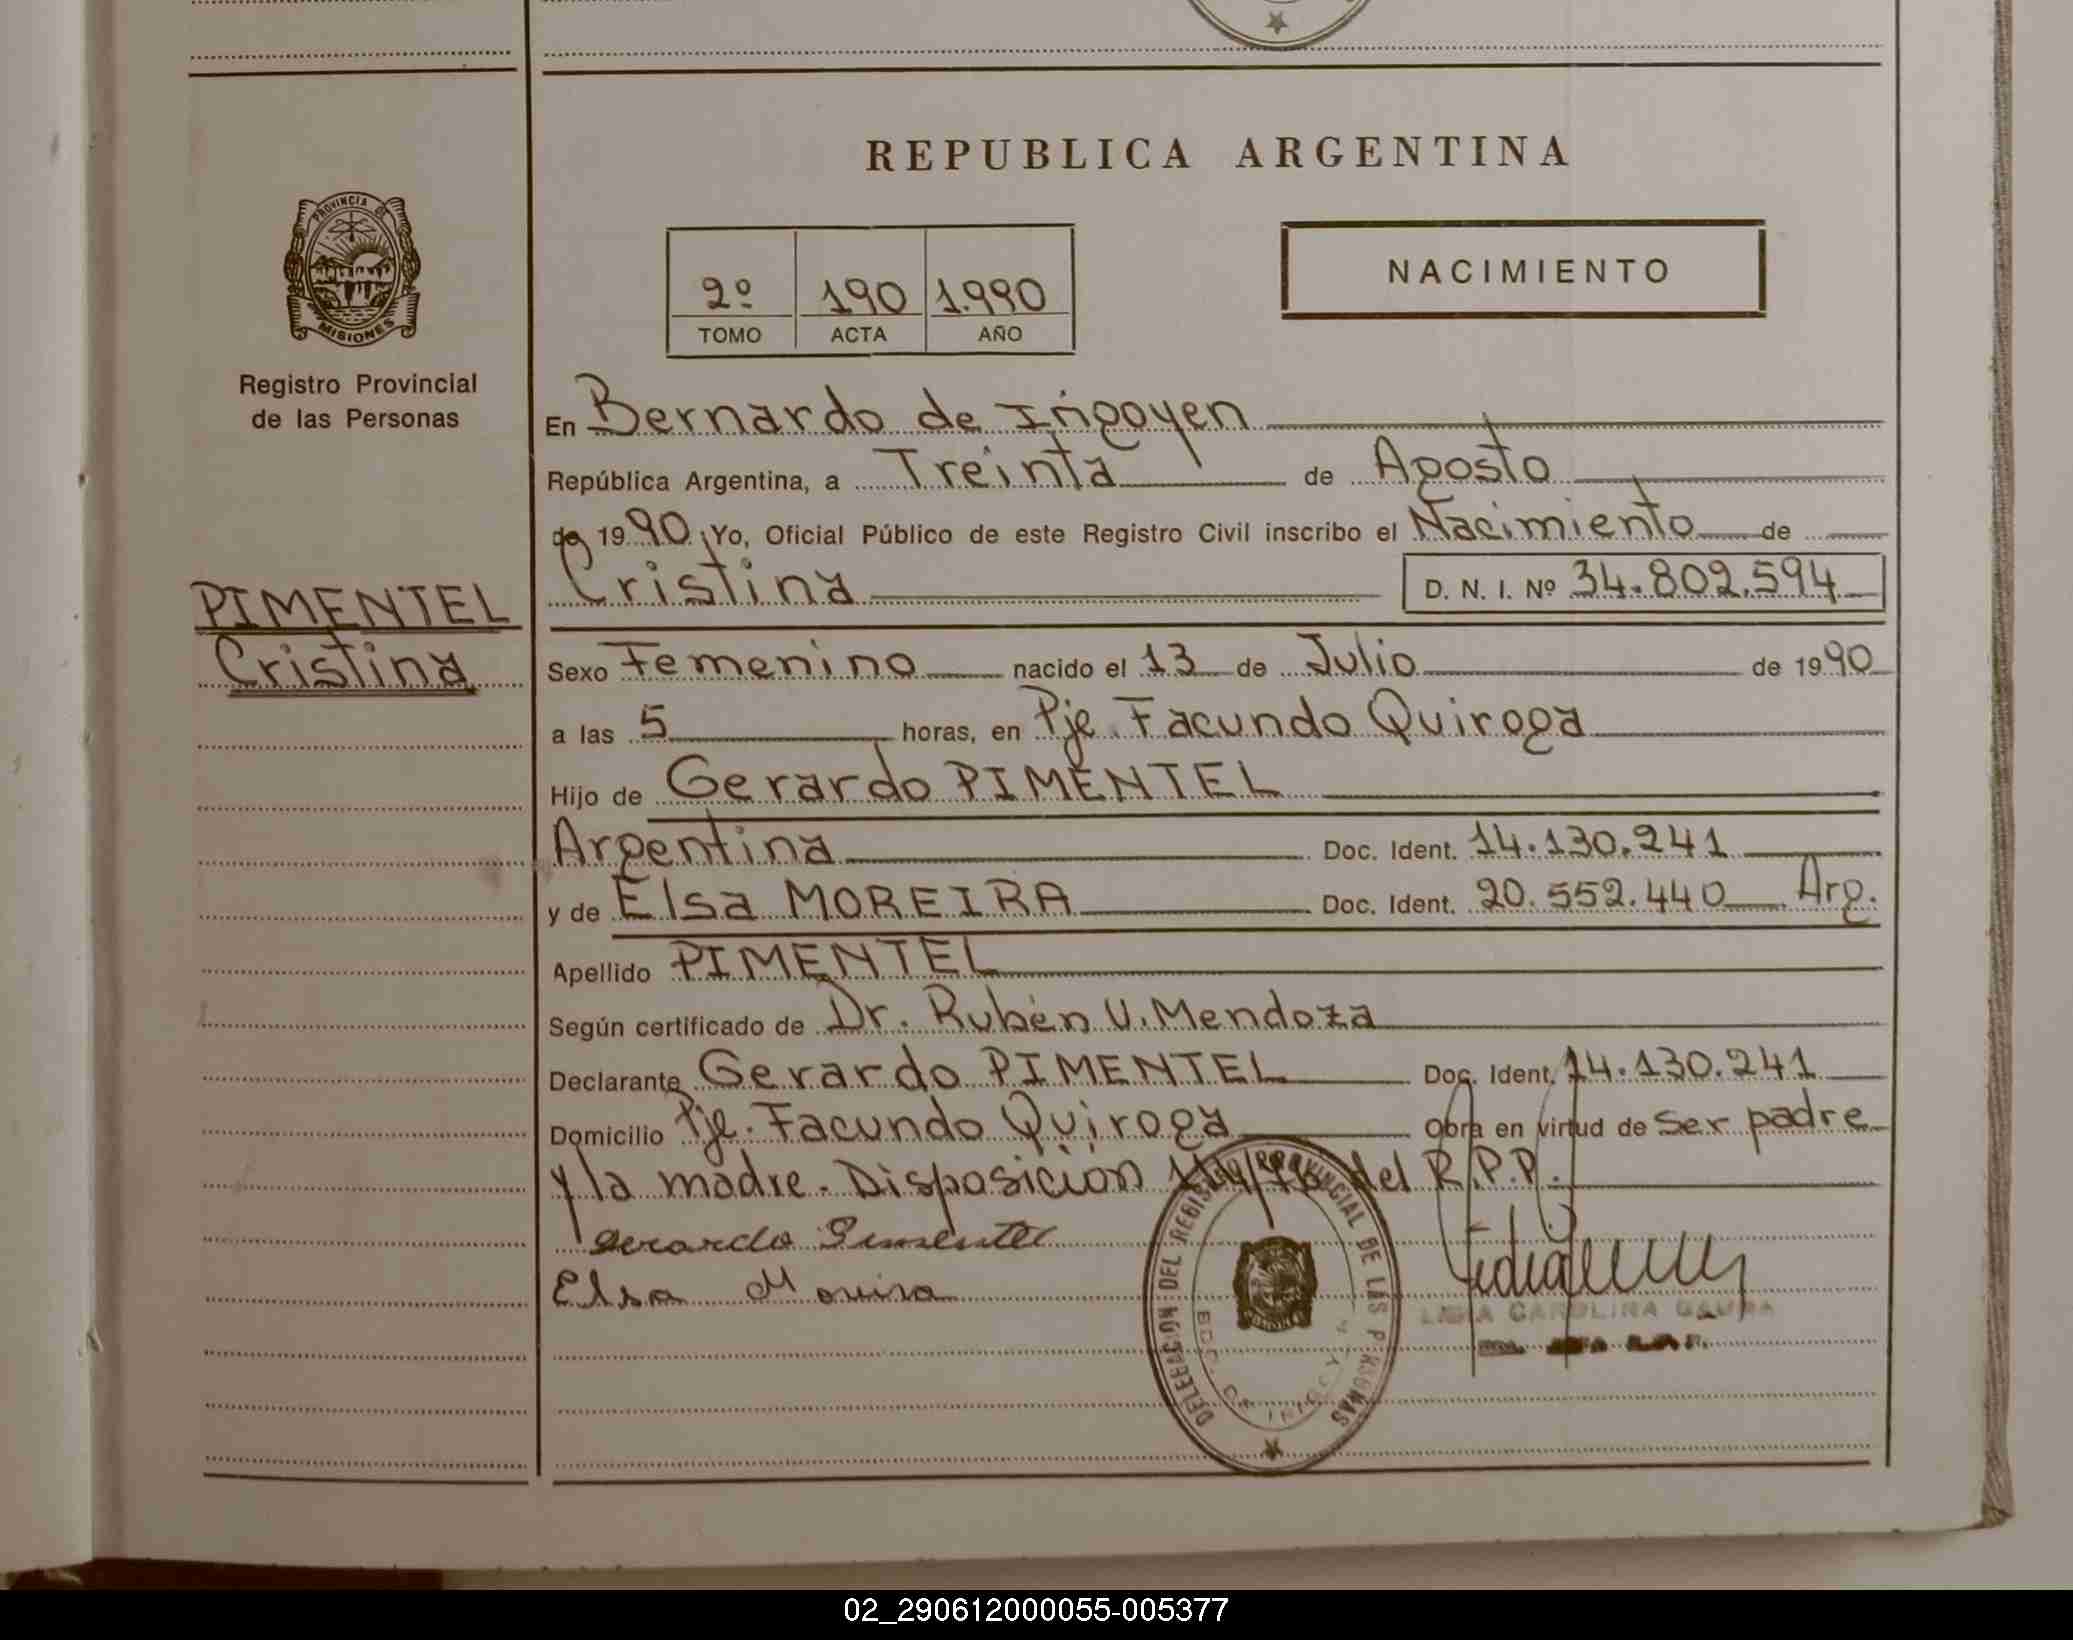 REPUBLICA ARGENTINA
PROVINCIA DE MISIONES
Registro Provincial
de las Personas
2º 190 1.990
TOMO ACTA AÑO
NACIMIENTO
En Bernardo de Irigoyen
República Argentina, a Treinta de Agosto
de 1990. Yo, Oficial Público de este Registro Civil inscribo el Nacimiento de
Cristina D. N. I. Nº 34.802.594
PIMENTEL
Cristina
Sexo Femenino nacido el 13 de Julio de 1990
a las 5 horas, en Pje. Facundo Quiroga
Hijo de Gerardo PIMENTEL
Argentina Doc. Ident. 14.130.241
y de Elsa MOREIRA Doc. Ident. 20.552.440 Arg.
Apellido PIMENTEL
Según certificado de Dr. Rubén U. Mendoza
Declarante Gerardo PIMENTEL Doc. Ident. 14.130.241
Domicilio Pje. Facundo Quiroga Obra en virtud de ser padre
y la madre. Disposición del R.P.P.
Gerardo Pimentel
Elsa Moreira
DELEGACION DEL REGISTRO PROVINCIAL DE LAS PERSONAS
BDO. DE IRIGOYEN
CAROLINA
02_290612000055-005377